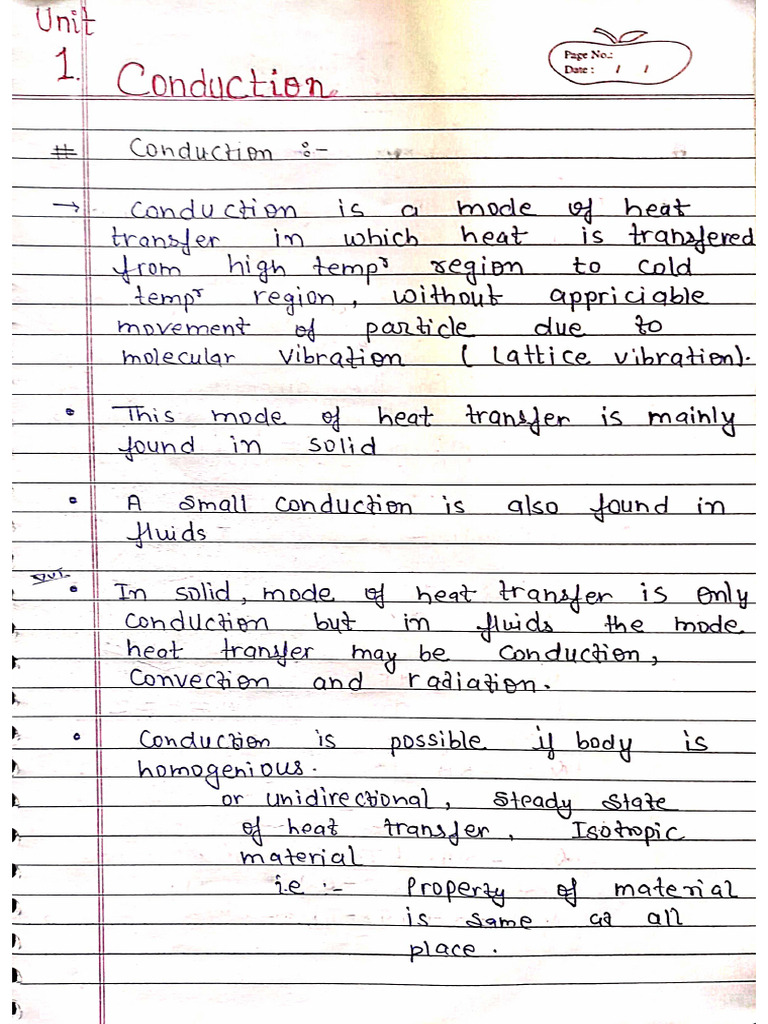 Unit
1.
Conduction
Page No.:
Date : / /
# Conduction :-
→ Conduction is a mode of heat
transfer in which heat is transfered
from high tempr region to cold
tempr region, without appriciable
movement of particle due to
molecular vibration ( Lattice vibration).
• This mode of heat transfer is mainly
found in solid
• A small conduction is also found in
fluids
• In solid, mode of heat transfer is only
conduction but in fluids the mode
heat transfer may be conduction,
convection and radiation.
• Conduction is possible if body is
homogenious.
or unidirectional, steady state
of heat transfer, Isotropic
material
i.e :- Property of material
is same at all
place.